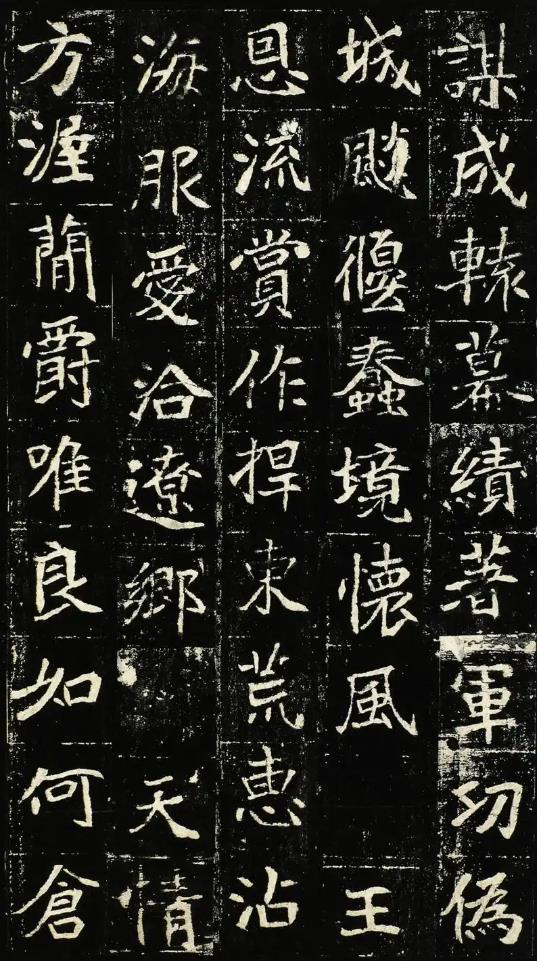 謀成轅幕績著軍功偽
城飈偃蠢境懷風 王
恩流賞作捍東荒惠沾
海服愛洽遼鄉 天情
方渥蕑爵唯良如何倉